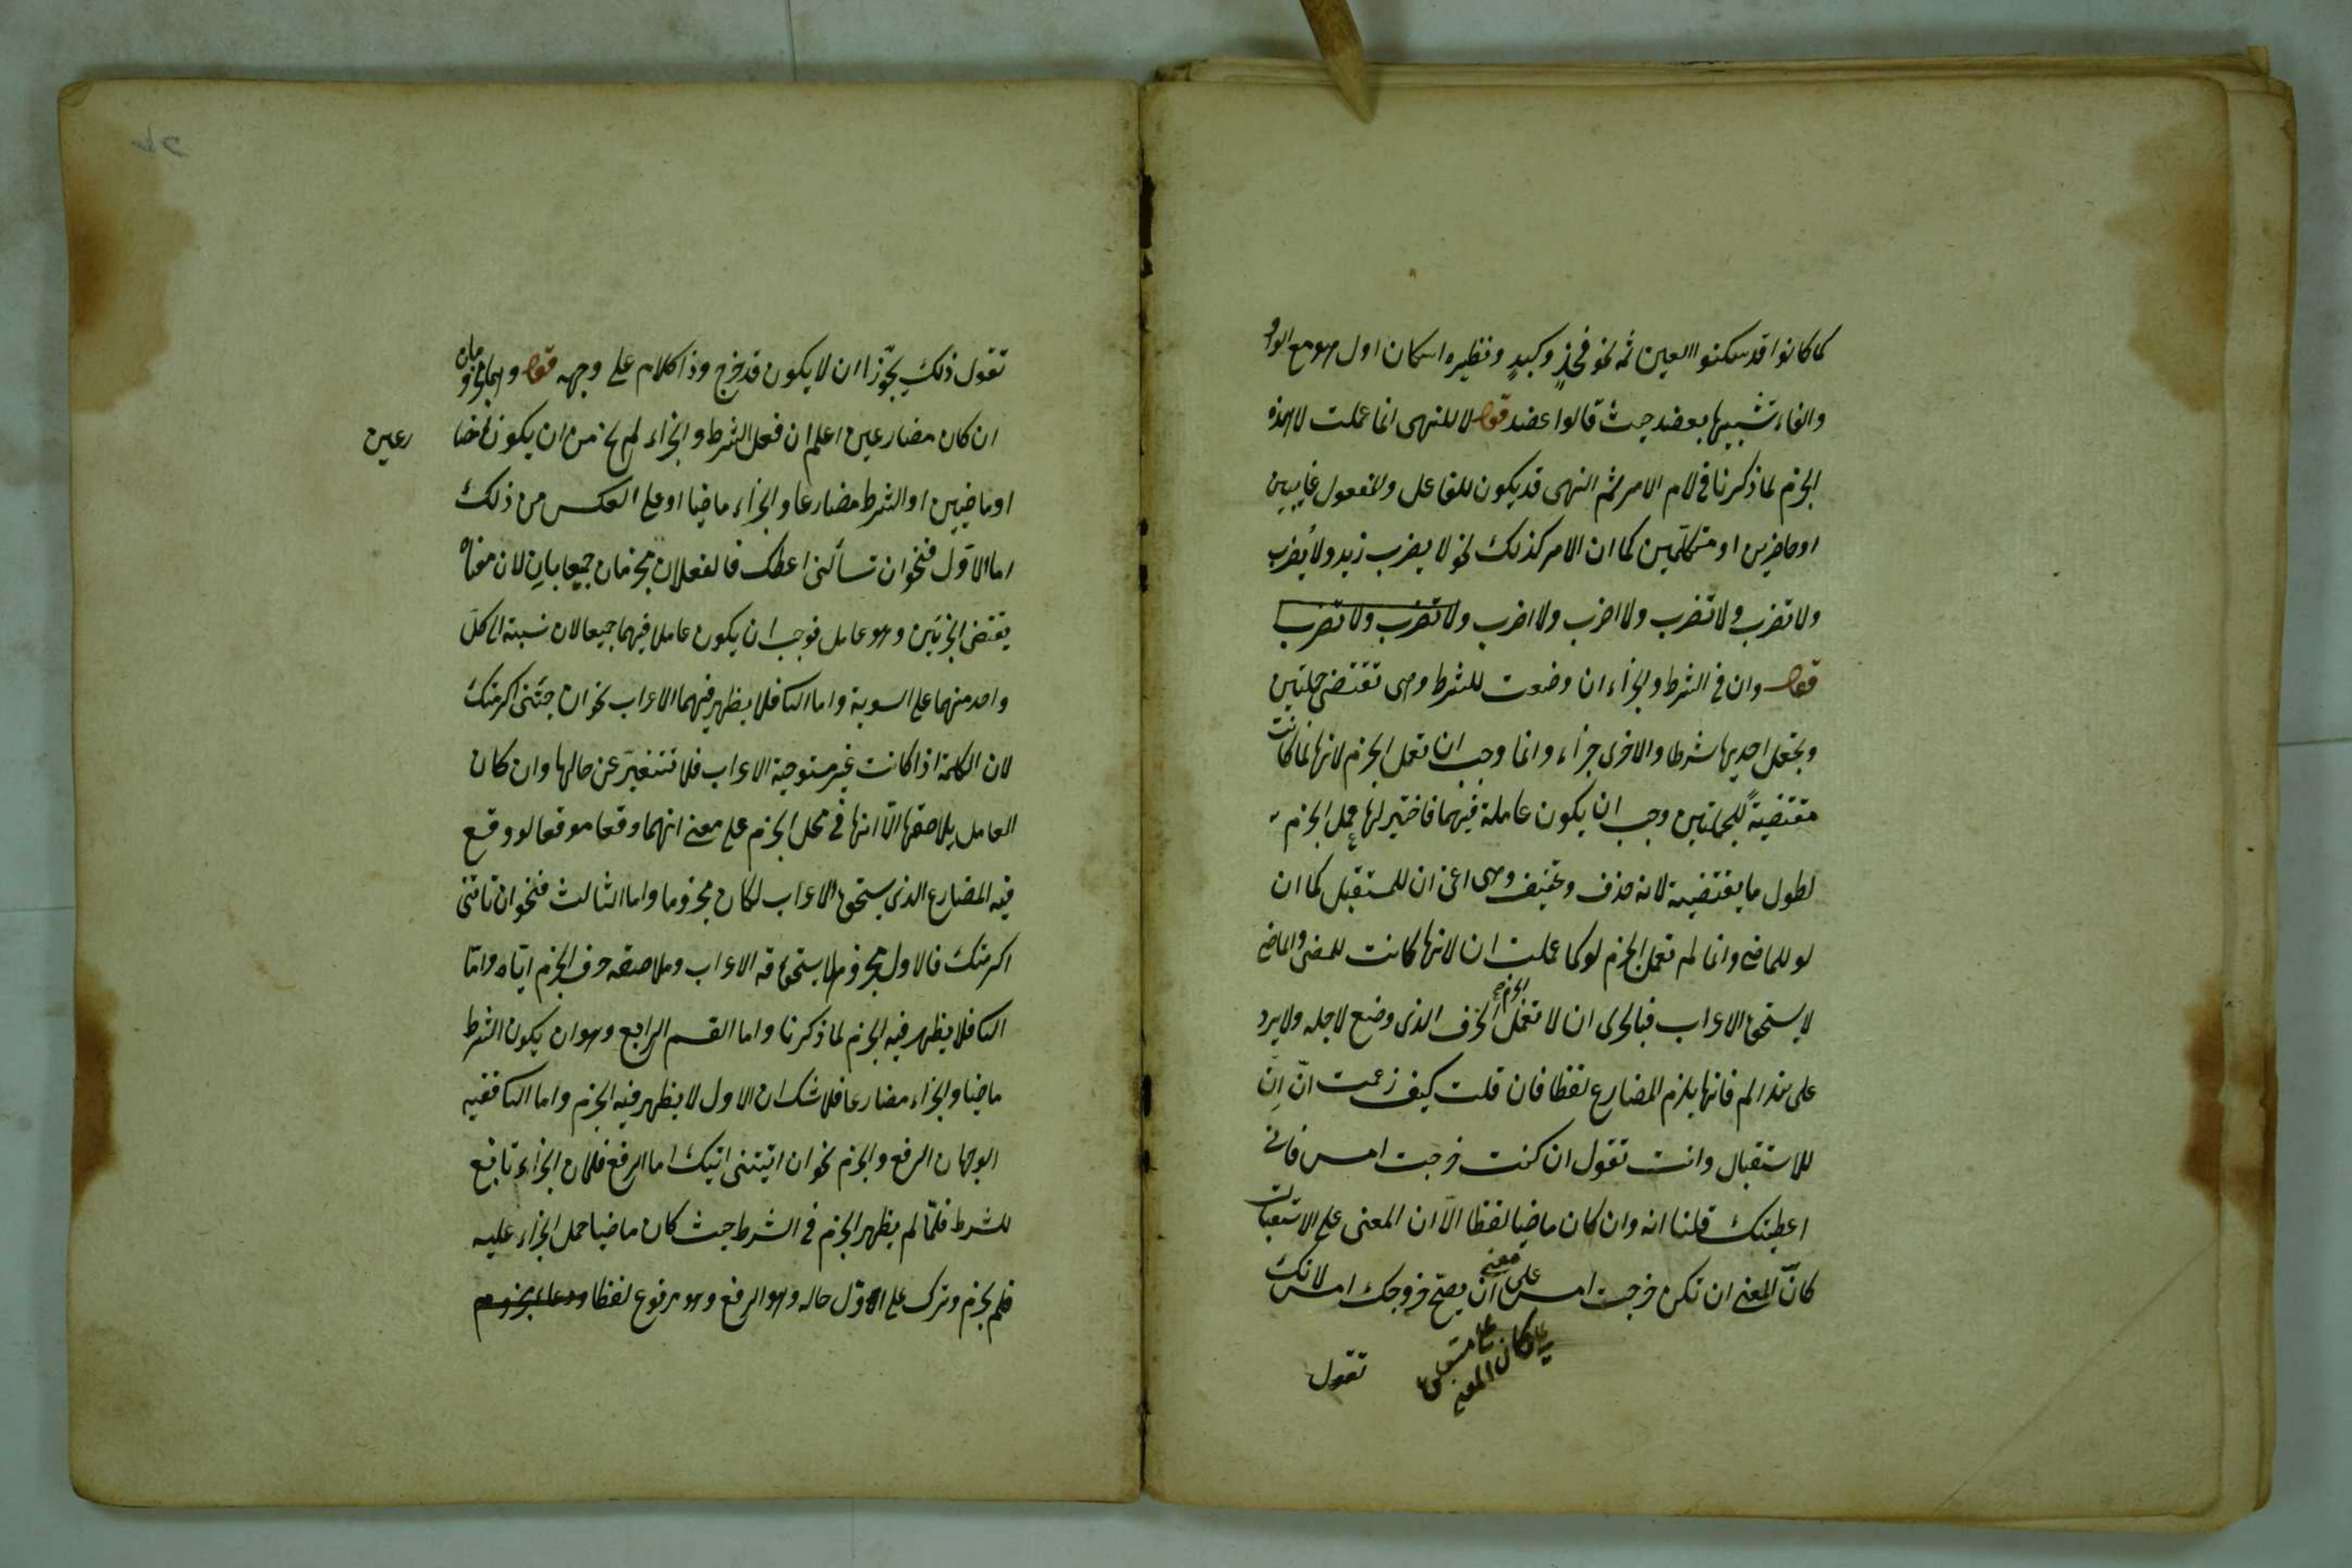 كما كانوا قد سكنوا العين ثمه نحو فخذٍ وكبدٍ ونظيره اسكان اول هو مع الواو
والفاء تشبيها بعضد حيث قالوا عضد قوله لا للنهى انما عملت لا هذه
الجزم لما ذكرنا فى لام الامر ثم النهى قد يكون للفاعل والمفعول غايبين
او حاضرين او متكلمين كما ان الامر كذلك نحو لا يضرب زيد ولا يُضرب
ولا تضرب ولا تضرب ولا اضرب ولا اضرب ولا تضرب ولا تضرب
قوله وان فى الشرط والجزاء ان وضعت للشرط وهى تقتضى جملتين
وتجعل احديهما شرطا والاخرى جزاء وانما وجب ان تعمل الجزم لانها لما كانت
مقتضيةً للجملتين وجب ان يكون عاملة فيهما فاختير لها عمل الجزم
لطول ما يقتضيه لانه حذف وتخفيف وهى اعنى ان للمستقبل كما ان
لو للماضى وانما لم تعمل الجزم لو كما عملت ان لانها كانت للمضى والماضى
لا يستحق الاعراب فبالحرى ان لا تعمل الجزم الحرف الذى وضع لاجله ولا يرد
على هذا لم فانها يلزم المضارع لفظا فان قلت كيف زعمت انّ اِن
للاستقبال وانت تقول ان كنت خرجت امس فانى
اعطيتك قلنا انه وان كان ماضيا لفظا الاّ ان المعنى على الاستقبال
كانّ المعنى ان تكن خرجت امس على معنى ان يصح خروجك امس لانك
تقول
تقول ذلك تجوّزا ان لا يكون قد خرج وذا كلام على وجهه قوله وهما مجزومان
ان كان مضارعين اعلم ان فعل الشرط والجزاء لم يخ من ان يكون مضا
رعين
او ماضيين او الشرط مضارعا والجزاء ماضيا او على العكس من ذلك
اما الاول فنحو ان تسألنى اعطك فالفعلان مجزومان جميعا بان لان معناه
يقتضى الجزئين وهو عامل فوجب ان يكون عاملا فيهما جميعا لان نسبته الى كل
واحد منهما على السوية واما الثا فلا يظهر فيهما الاعراب نحو ان جئتنى اكرمتك
لان الكلمة اذا كانت غير مستوجبة الاعراب فلا تتغير عن حالها وان كان
العامل يلاصقها الاّ انها فى محل الجزم على معنى انهما وقعا موقعا لو وقع
فيه المضارع الذى يستحق الاعراب لكان مجزوما واما الثالث فنحو ان تاتنى
اكرمتك فالاول مجزوم لاستحقاقه الاعراب وملاصقه حرف الجزم اياه وامّا
الثا فلا يظهر فيه الجزم لما ذكرنا واما القسم الرابع وهو ان يكون الشرط
ماضيا والجزاء مضارعا فلا شك ان الاول لا يظهر فيه الجزم واما الثا ففيه
الوجهان الرفع والجزم نحو ان اتيتنى اتيك اما الرفع فلان الجزاء تابع
للشرط فلمّا لم يظهر الجزم فى الشرط حيث كان ماضيا حمل الجزاء عليه
فلم يجزم وترك على اول حاله وهو الرفع وهو مرفوع لفظا